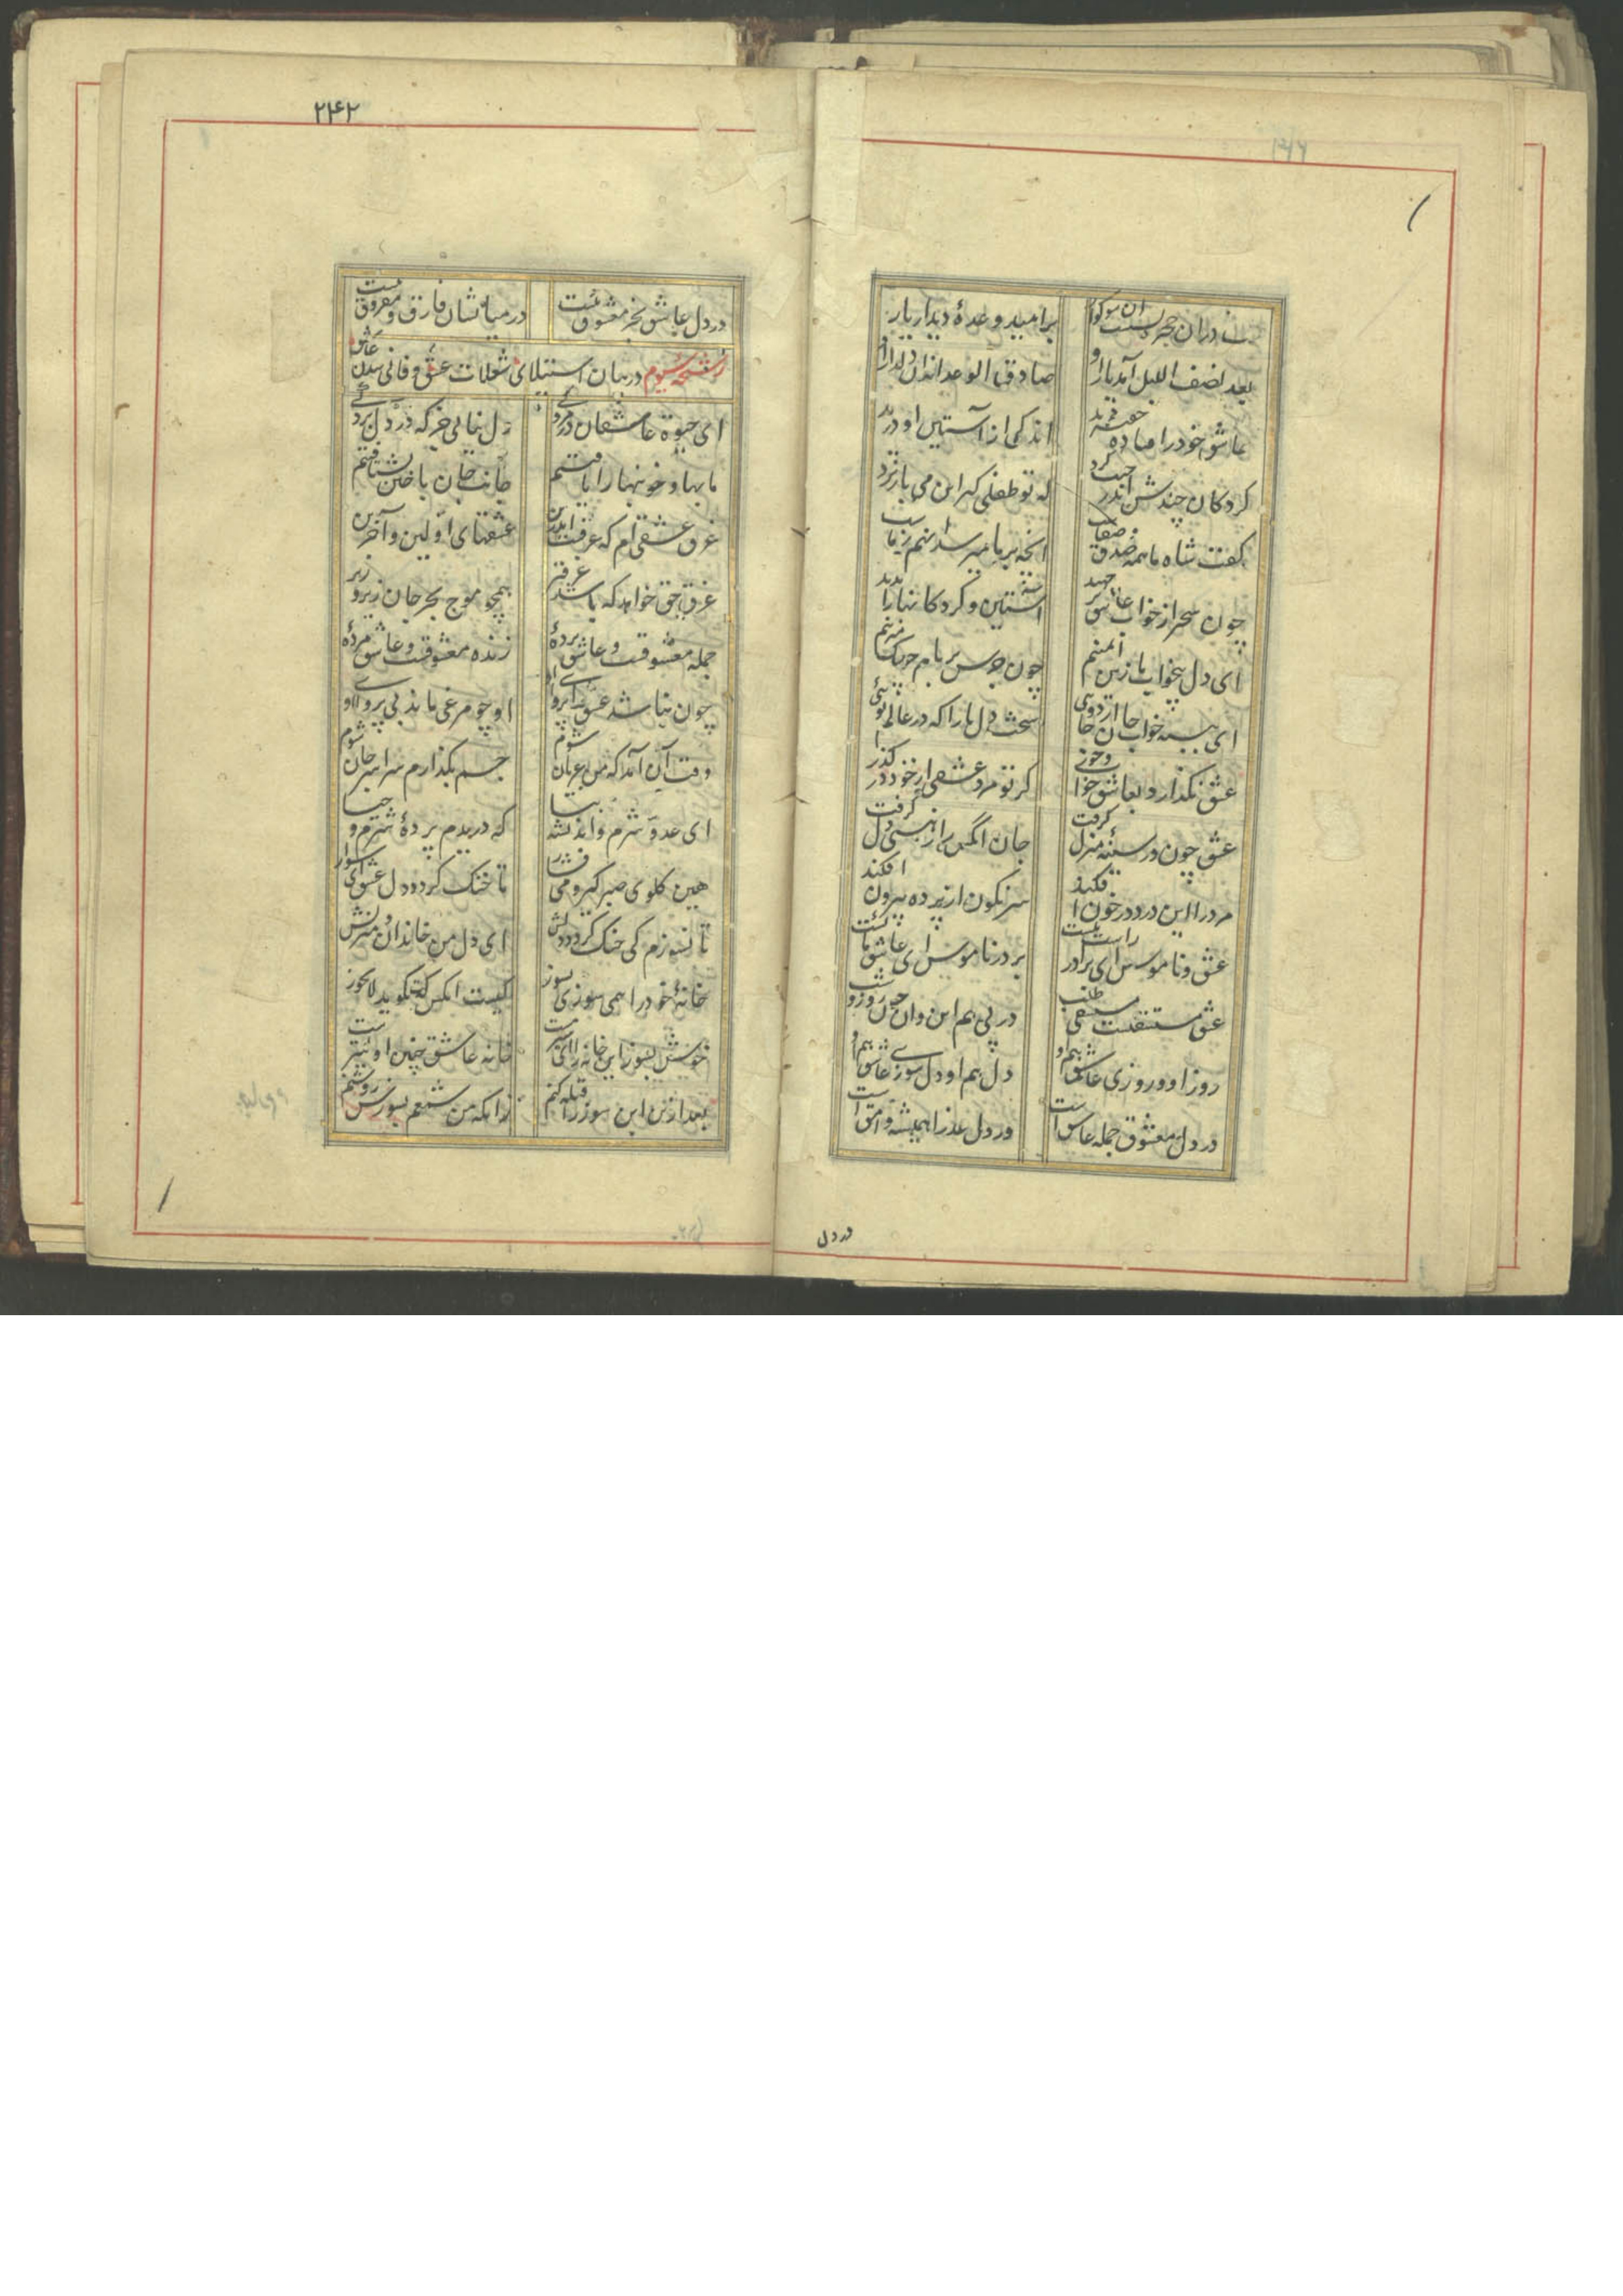 شب در آن حجره نشست آن سوکوار
بر امید وعدهٔ دیدار یار
بعد نصف اللیل آمد یار او
صادق الوعدانه آن دلدار او
عاشق خود را فتاده خفته دید
اندکی از آستین او درید
کردکان چندش اندر جیب کرد
که تو طفلی کیر این می باز نرد
کفت شاه ما همه صدق و صفاست
آنچه بر ما میرسد آنهم ز ماست
چون سحر از خواب عاشق بر جهید
آستین و کردکانها را بدید
ای دل بیخواب ما زین ایمنیم
چون جرس بر بام چوبک میزنیم
عشق چون در سینه منزل کرفت
جان آنکس را ز هستی دل کرفت
مرد را این درد در خون افکند
سرنکون از پرده بیرون افکند
عشق و ناموس ای برادر راست نیست
بر در ناموس ای عاشق مایست
عشق مستسقیست مستسقی طلب
در پی هم این و آن چون روز و شب
در دل معشوق جمله عاشق است
در دل عذرا همیشه وامق است
در دل
۲۴۲
در دل عاشق بجز معشوق نیست
در میانشان فارق و مفروق نیست
رشحه سیوم در بیان استیلای شعلات عشق و فانی شدن عاشق
ای حیوة عاشقان در مردکی
دل نیابی جز که در دل بردکی
ما بها و خونبها را یافتیم
جانب جان باختن بشتافتیم
غرق عشقی ام که غرقست اندرین
عشقهای اولین و آخرین
غرق حق خواهد که باشد غرقتر
همچو موج بحر جان زیر و زبر
جمله معشوقست و عاشق پردهٔ
زنده معشوقست و عاشق مردهٔ
چون نباشد عشق را پروای او
او چو مرغی ماند بی پر وای او
وقت آن آمد که من عریان شوم
جسم بکذارم سراسر جان شوم
ای عدوّ شرم و اندیشه بیا
که دریدم پردهٔ شرم و حیا
هین کلوی صبر کیر و می فشار
تا خنک کردد دل عشق ای سوار
تا نسوزم کی خنک کردد دلش
ای دل من خاندان و منزلش
خانهٔ خود را همی سوزی بسوز
کیست آنکس که بکوید لایجوز
خوش بسوز این خانه را ای شیر مست
خانه عاشق چنین اولیتر است
بعد ازین این سوز را قبله کنم
زانکه من شمعم بسوزش روشنم